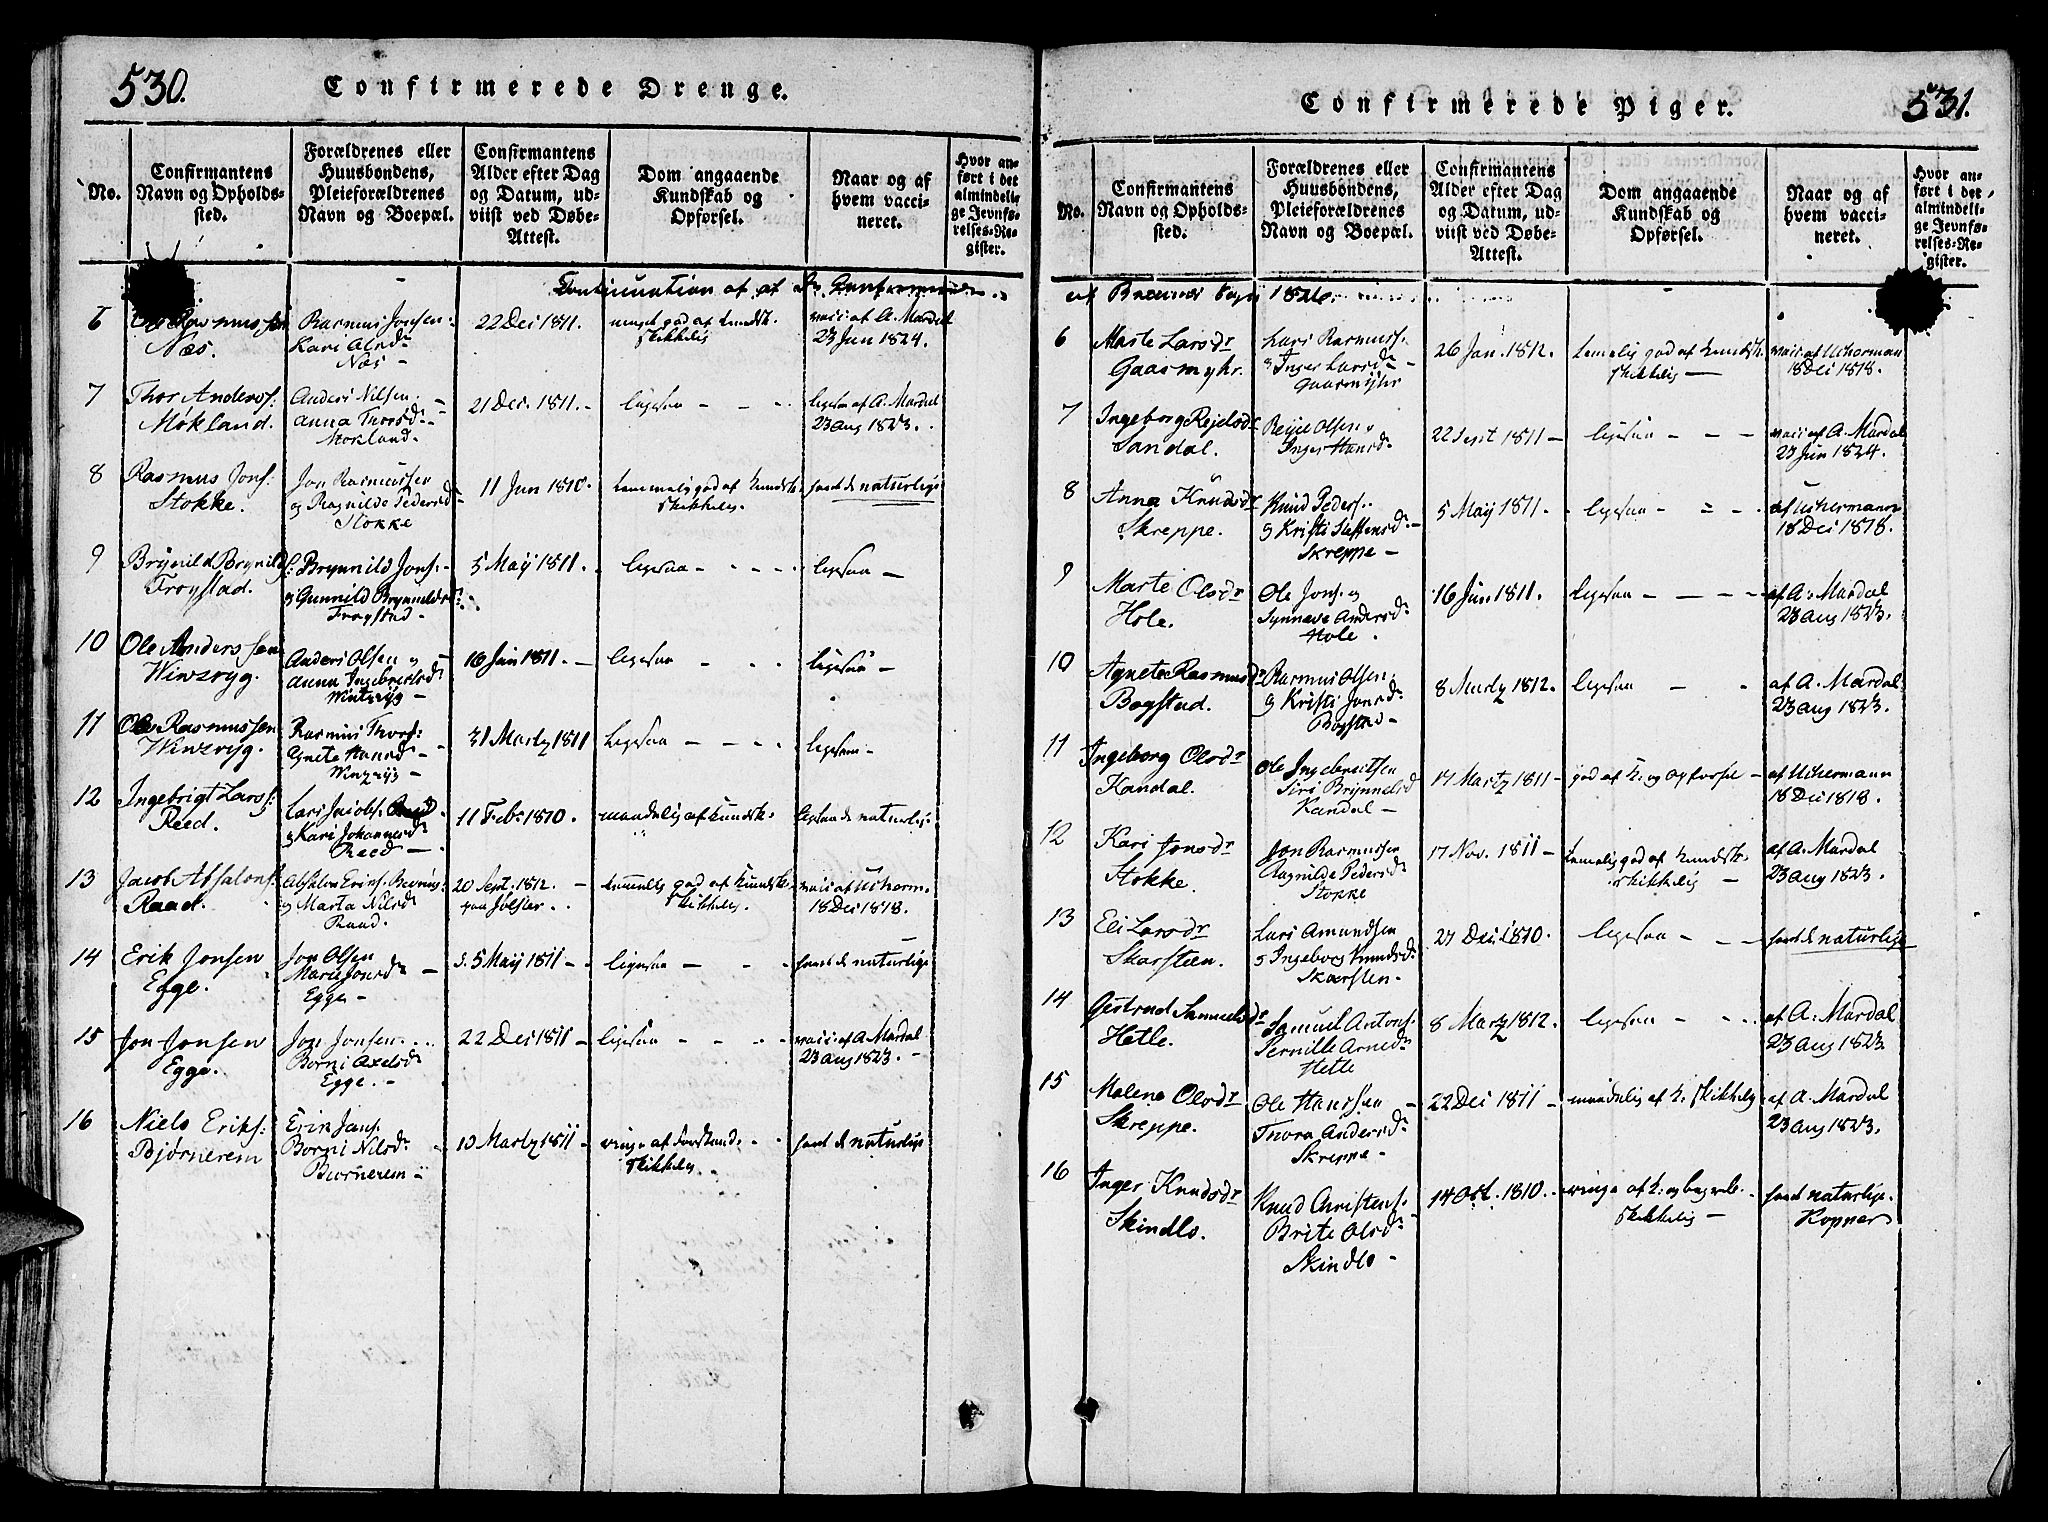 530.
Confirmerede Drenge.
No.
Confirmantens Navn og Opholds-sted.
Forældrenes eller Huusbondens, Pleieforældrenes Navn og Boepæl.
Confirmantens Alder efter Dag og Datum, ud-viist ved Døbe-Attest.
Dom angaaende Kundskab og Opførsel.
Naar og af hvem vacci-neret.
Hvor an-ført i det almindeli-ge Jevnfø-relses-Re-gister.
Continuation af
6 Rasmussen Rasmus Jonsen 22 Dec 1811. meget god af kundsk. vacc: af A. Mardal
Næs. Kari Olsdr skikkelig 23 Jun 1824.
Næs -
7 Thor Anders: Anders Nilsen 21 Dec. 1811. - ligesaa - - - ligesaa af A. Mardal
Møkland. Anna Thorsd. 23 Aug 1823.
Mokland.
8 Rasmus Jons: Jon Rasmussen 11 Jun 1810. temmelig god af Kundsk havt de naturlige
Stokke. og Ragnilde Pedersd skikkelig.
Stokke
9 Brynild Brynild s: Brynnild Jons: 5 Maÿ 1811. ligesaa - - - ligesaa -
Frøystad. og Gunnild Brynnelds
Frøystad.
10 Ole Anderssen Anders Olsen og 16 Jun 1811. - ligesaa - - ligesaa -
Winsryg. Anna Ingebretsd.
Wintsrÿg -
11 Ole Rasmussen Rasmus Thors: 31 Martz 1811 Ligesaa - - - ligesaa -
Winsryg. Agnete Hansd.
Winzrÿg -
12 Ingebrigt Lars: Lars Jacobs: 11 Febr 1810. maadelig af kundsk. ligesaa de naturlige
Reed. og Kari Johannesd
Reed -
13 Jacob Absalons: Absalon Erics: 20 Sept. 1812. - temmelig god af kundsk. vacc: af Ucherm.
Raad. og Marta Nilsd paa Jølster. skikkelig. 18 Dec 1818.
Raad.
14 Erik Jonsen Jon Olsen 5 Maÿ 1811 - ligesaa - - - havt de naturlige
Egge. Marie Jonsd. -
Egge -
15 Jon Jonsen Jon Jonsen 22 Dec 1811 - ligesaa - - - vacc: af A. Mardal
Egge. Borni Axelsd. 23 Aug 1823. -
Egge. -
16 Niels Eriks: Erik Jans. 10 Martz 1811 - ringe af Forstand. havt de naturlige
Bjørnerem Borni Nilsd. skikkelig.
Biørnerem
531.
Confirmerede Piger.
No.
Confirmantens Navn og Opholds-sted.
Forældrenes eller Huusbondens, Pleieforældrenes Navn og Boepæl.
Confirmantens Alder efter Dag og Datum, ud-viist ved Døbe-Attest.
Dom angaaende Kundskab og Opførsel.
Naar og af hvem vacci-neret.
Hvor an-ført i det almindeli-ge Jevnfø-relses-Re-gister.
af Breimes Sogn 1826.
6 Marte Larsdr Lars Rasmuss. 26 Jan. 1812. temelig god af kundsk. vacc: af Ucherman
Gaasmyhr. og Inger Larsd. skikkelig - 18 Dec 1818.
Gaasmÿhr
7 Ingeborg Rejelsdr Reijel Olsen 22 Sept 1811 - ligesaa - - - vacc: af A. Mardal
Sandal. Inger Hansd. 23 Jun 1824.
8 Anna Knudsdr Knud Peders. 5 Maÿ 1811. - ligesaa - af Uchermann
Skreppe. og Kristi Steffensd. 18 Dec 1818.
Skreppe -
9 Marte Olsdr Ole Jons. og 16 Jun 1811. ligesaa - - - af A. Mardal
Hole. Synneve Andersd. 23 Aug 1823.
Hole.
10 Agnete Rasmusdr Rasmus Olsen 8 Martz 1812. ligesaa - af A. Mardal
Bogstad. og Kristi Jonsd. 23 Aug 1823.
Bogstad -
11 Ingeborg Olsdr Ole Ingebretsen 17 Martz 1811 - god af K. og opførsel - af Uchermann
Kandal. Siri Brynnelsd 18 Dec 1818.
Kandal -
12 Kari Jonsdr Jon Rasmussen 17 Nov. 1811 - temelig god af kundsk. af A. Mardal
Stokke. Ragnilde Pedersd. skikkelig - 23 Aug 1823.
Stokke
13 Eli Larsdr Lars Amundsen 27 Dec. 1810. ligesaa - - - havt de naturlige
Skarsteen. og Ingeborg Knudsd.
Skarsten -
14 Gertrud Samuelsdr Samuel Antons. 8 Martz 1812. ligesaa - - - af A. Mardal
Hetle. Pernille Arnedr 23 Aug 1823.
Hetle
15 Malene Olsdr Ole Hanssen - 22 Dec 1811 - maadelig af K. skikkelig af A. Mardal
Skreppe. Thora Andersd. 23 Aug 1823.
Skreppe -
16 Inger Knudsdr Knud Christens. 14 Oct. 1810. - ringe af K. og begreb. - havt naturlige
Skindlo. Brite Olsd. skikkelig - Kopper
Skindlo -